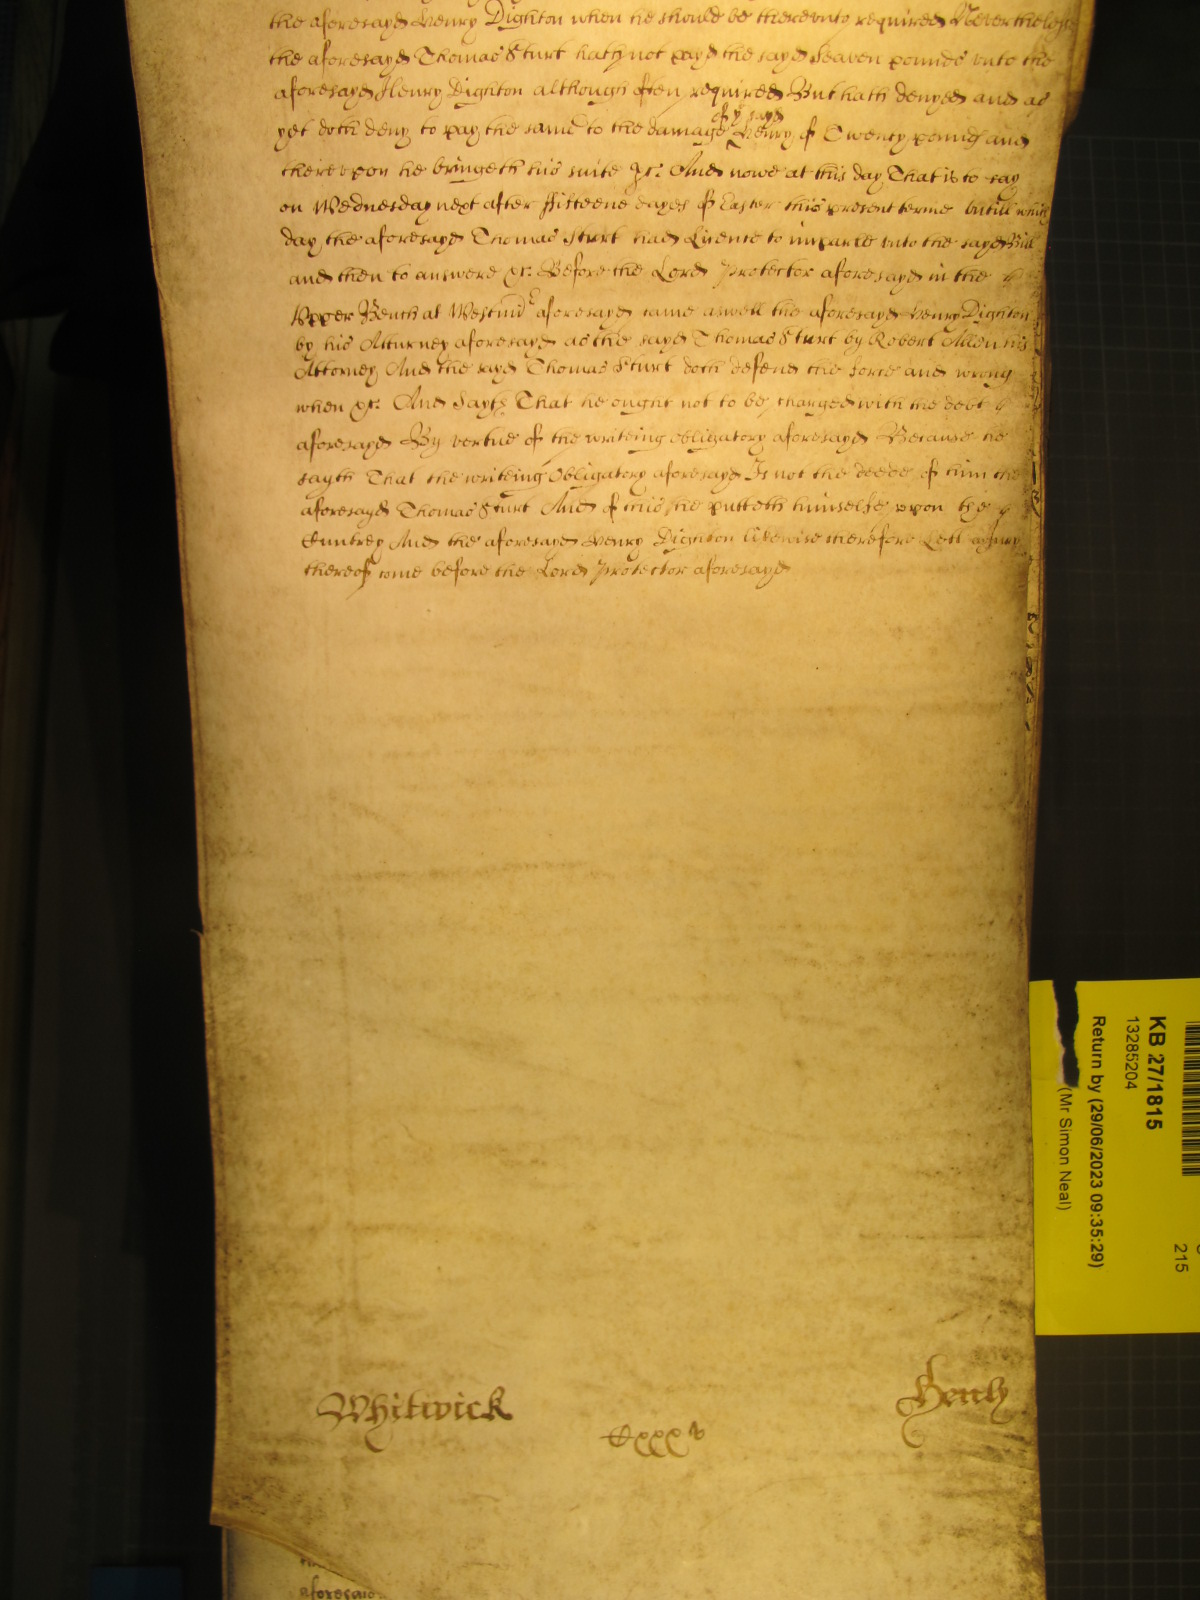 the aforesayd Henry Dighton when he should be therevnto required Neverthelesse
the aforesayd Thomas Sturt hath not payd the sayd Seaven pounds vnto the
aforesayd Henry Dighton although often required But hath denyed and as
of yͤ sayd
yet doth deny to pay the same to the damage Henry of Twenty pounds and
therevpon he bringeth his suite &c. And nowe at this day That is to say
on Wednesday next after fifteene dayes of Easter this present terme vntill which
day the aforesayd Thomas Sturt had Lycence to imparle vnto the sayd Bill
and then to answere &c. Before the Lord Protector aforesayd in the
Vpper Bench at Westmͬ aforesayd came aswell the aforesayd Henry Dighton
by his Atturney aforesayd as the sayd Thomas Sturt by Robert Allen his
Attorney And the sayd Thomas Sturt doth defend the force and wrong
when &c. And Sayth That he ought not to be charged with the debt
aforesayd By vertue of the writeing obligatory aforesayd Because he
sayth That the writeing Obligatory aforesayd Is not the deede of him the
aforesayd Thomas Sturt And of this he putteth himselfe vpon the
Cuntrey And the aforesayd Henry Dighton likewise therefore Lett a Jury
thereof come before the Lord Protector aforesayd
Whitwick
Henly
Cxxxv
aforesaid
KB 27/1815
13285204
Return by (29/06/2023 09:35:29)
(Mr Simon Neal)
215